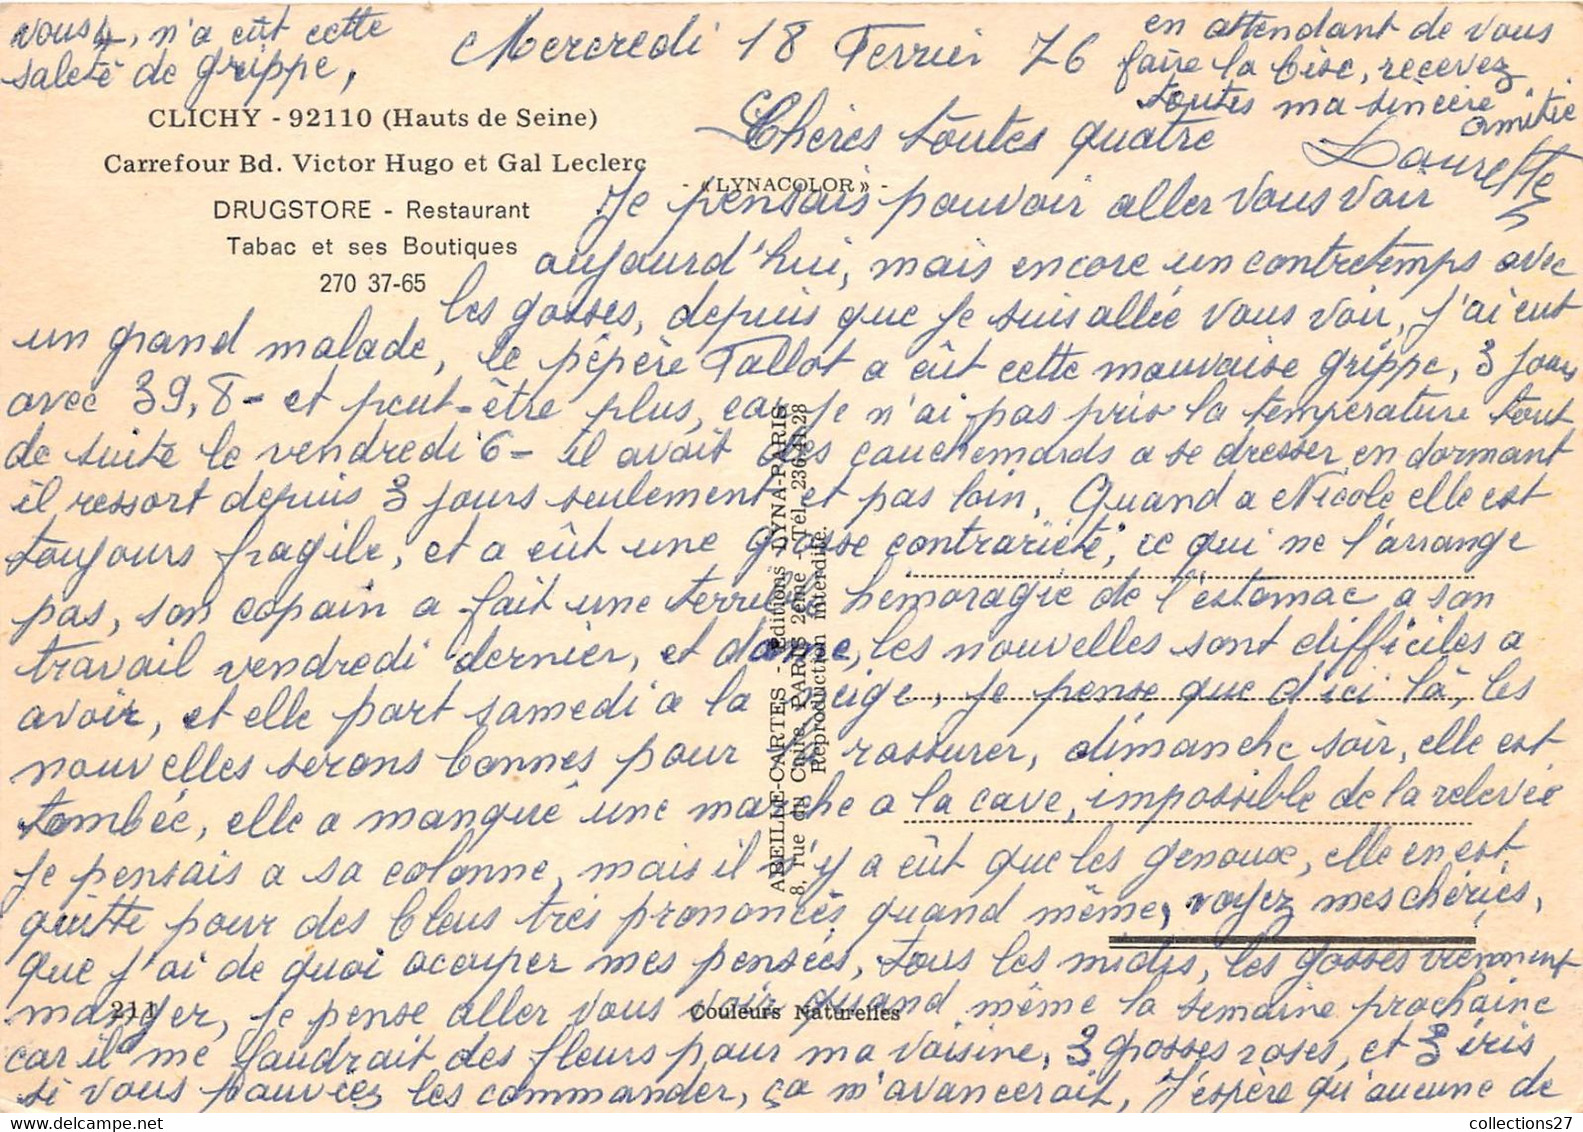 Mercredi 18 Ferrier 76
Chères toutes quatre
Je pensais pouvoir aller vous voir
aujourd'hui, mais encore un contretemps avec
les gosses, depuis que je suis allée vous voir, j'ai eut
un grand malade, le pépère Tallot a eût cette mauvaise grippe, 3 jours
avec 39,8 - et peut-être plus, car je n'ai pas pris la temperature tout
de suite le vendredi 6 - il avait des cauchemards a se dresser en dormant
il ressort depuis 3 jours seulement et pas loin, Quand a Nicole elle est
toujours fragile, et a eût une grosse contrariété, ce qui ne l'arrange
pas, son copain a fait une terrible hemoragie de l'estomac a son
travail vendredi dernier, et dame, les nouvelles sont difficiles a
avoir, et elle part samedi a la neige, je pense que d'ici là, les
nouvelles serons bonnes pour la rassurer, dimanche soir, elle est
tombée, elle a manqué une marche a la cave, impossible de la relevée
je pensais a sa colonne, mais il n'y a eût que les genoux, elle en est
quitte pour des bleus très prononcés quand même, voyez mes chéries,
que j'ai de quoi occuper mes pensées, tous les midis, les gosses viennent
manger, je pense aller vous voir quand même la semaine prochaine
car il me faudrait des fleurs pour ma voisine, 3 grosses roses, et 3 iris
si vous pouviez les commander, ça m'avancerait, J'espère qu'aucune de
vous 4, n'a eût cette
saleté de grippe,
en attendant de vous
faire la bise, recevez
toutes ma sincère
amitié
Laurette
CLICHY - 92110 (Hauts de Seine)
Carrefour Bd. Victor Hugo et Gal Leclerc
DRUGSTORE - Restaurant
Tabac et ses Boutiques
270 37-65
- « LYNACOLOR » -
ABEILLE-CARTES - Editions LYNA-PARIS
8, rue du Caire, PARIS 2ème - Tél. 236.41.28
Reproduction interdite.
211
Couleurs Naturelles
collections27